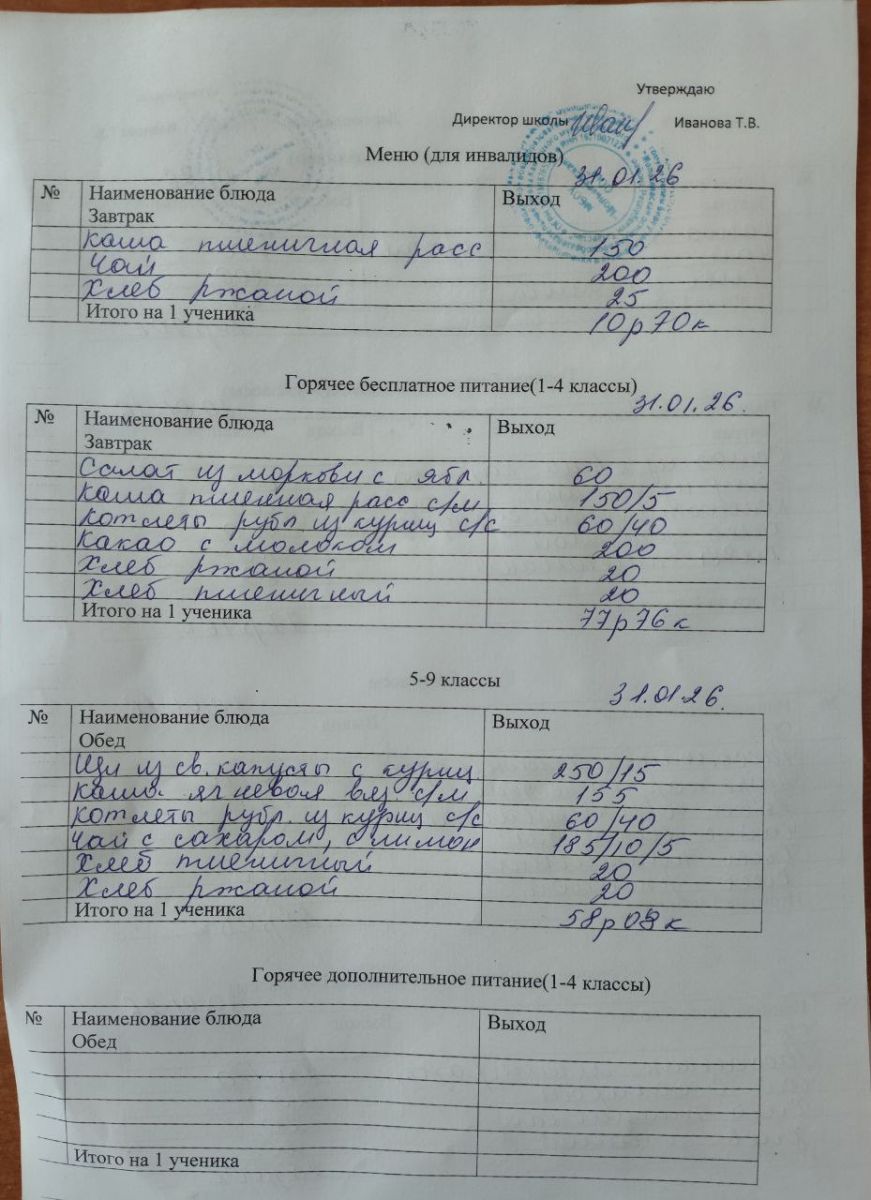 Утверждаю
Директор школы Иванова Т.В.
Меню (для инвалидов)
31.01.26
№ Наименование блюда Выход
Завтрак
Каша пшеничная расс 150
Чай 200
Хлеб ржаной 25
Итого на 1 ученика 10р70к
Горячее бесплатное питание(1-4 классы)
31.01.26.
№ Наименование блюда Выход
Завтрак
Салат из моркови с ябл. 60
Каша пшенная расс с/м 150/5
Котлеты рубл из куриц с/с 60/40
Какао с молоком 200
Хлеб ржаной 20
Хлеб пшеничный 20
Итого на 1 ученика 77р76к
5-9 классы
31.01.26.
№ Наименование блюда Выход
Обед
Щи из св. капусты с куриц. 250/15
Каша ячневая вяз. с/м 155
Котлеты рубл. из куриц с/с 60/40
Чай с сахаром, с лимон 185/10/5
Хлеб пшеничный 20
Хлеб ржаной 20
Итого на 1 ученика 58р08к
Горячее дополнительное питание(1-4 классы)
№ Наименование блюда Выход
Обед
Итого на 1 ученика